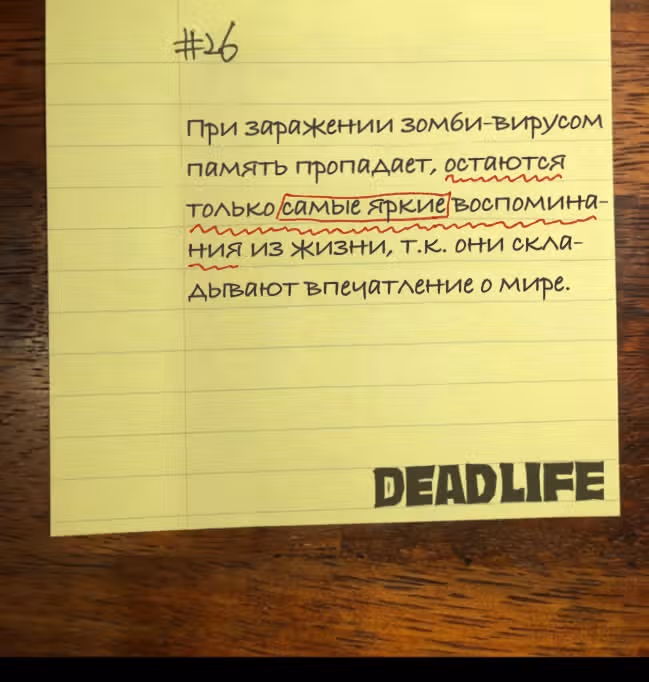 #26
При заражении зомби-вирусом
память пропадает, остаются
только самые яркие воспомина-
ния из жизни, т.к. они скла-
дывают впечатление о мире.
DEADLIFE